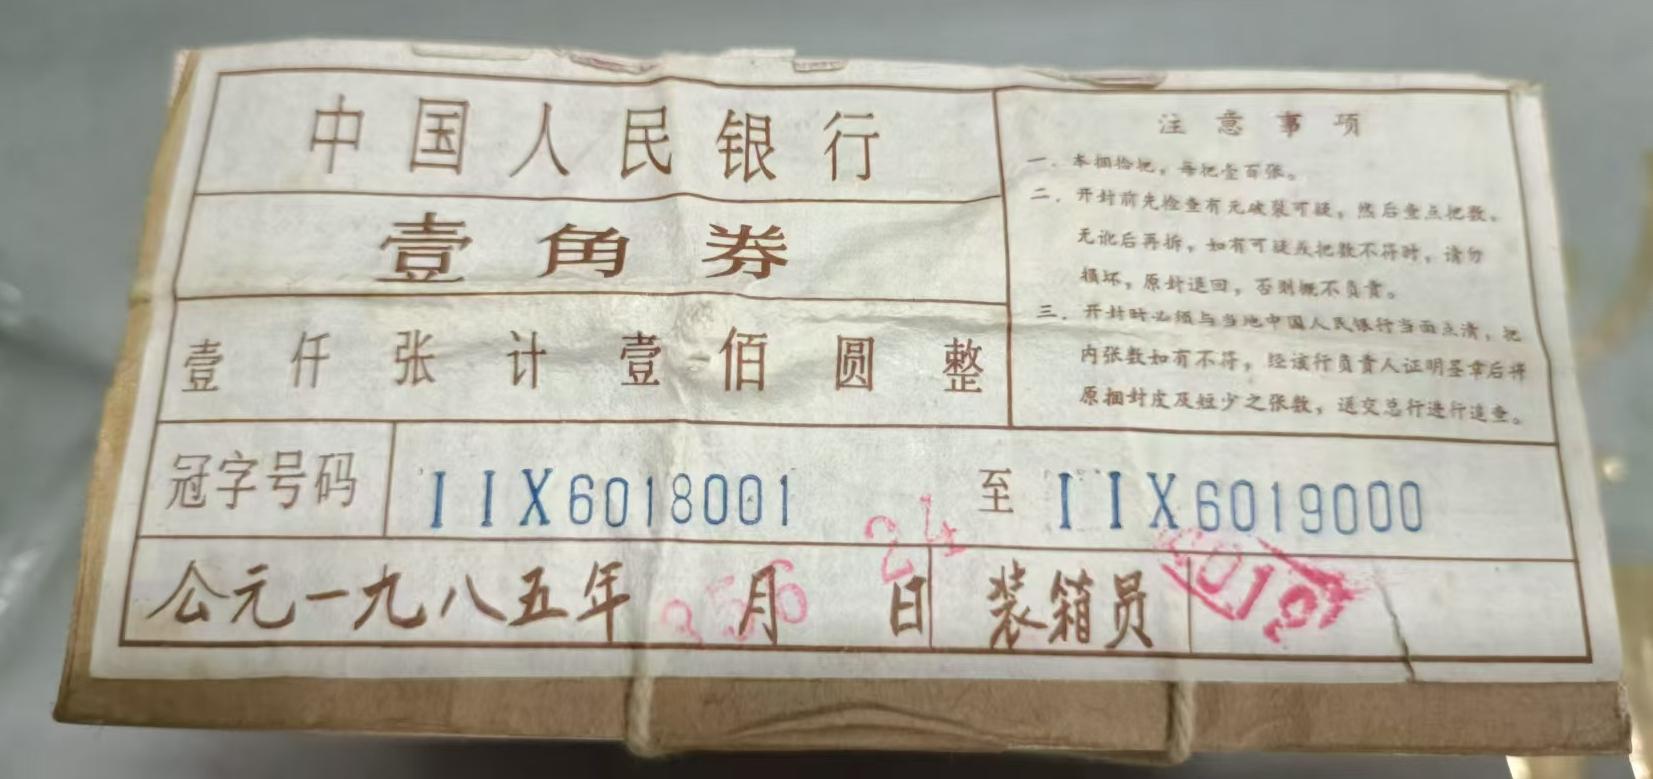 中国人民银行
壹角券
壹仟张计壹佰圆整
注意事项
一．本捆拾把，每把壹百张。
二．开封前先检查有无破裂可疑，然后查点把数。
无讹后再拆，如有可疑或把数不符时，请勿
损坏，原封退回，否则概不负责。
三．开封时必须与当地中国人民银行当面点清，把
内张数如有不符，经该行负责人证明盖章后将
原捆封皮及短少之张数，送交总行进行追查。
冠字号码 IIX6018001 至 IIX6019000
公元一九八五年 月 日 装箱员
24